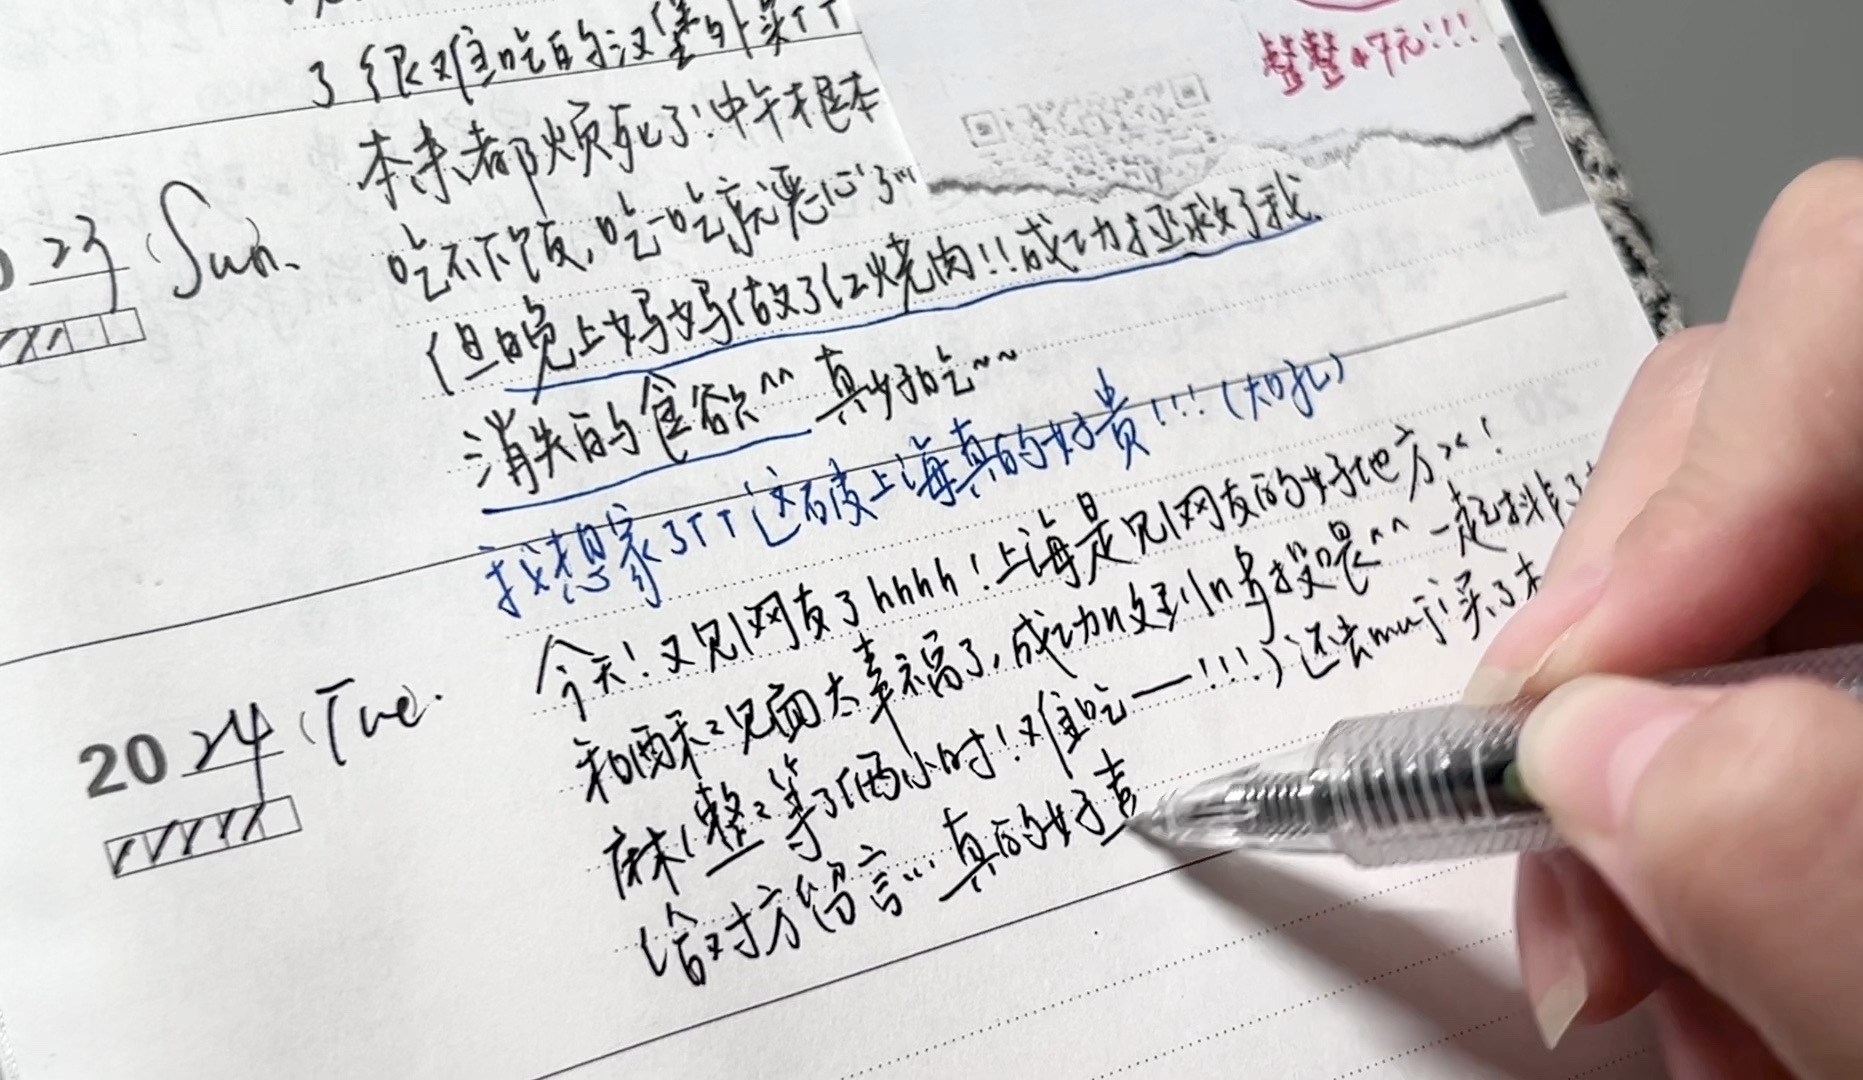 了很难吃的汉堡外卖TT
整整47元!!!
本来都烦死了!中午根本
23 Sun.
吃不下饭,吃一吃就恶心了"
但晚上妈妈做了红烧肉!!成功拯救了我
消失的食欲^^ 真好吃~~
我想家了TT 这破上海真的好贵!!!(大哭)
2024 Tue.
今天!又见网友了hhhh!上海是见网友的好地方><!
和酥二见面太幸福了,成功收到投喂^^ 一起排了
麻(整二等了俩小时!难吃——!!!)还去muji买了本
给对方留言... 真的好喜